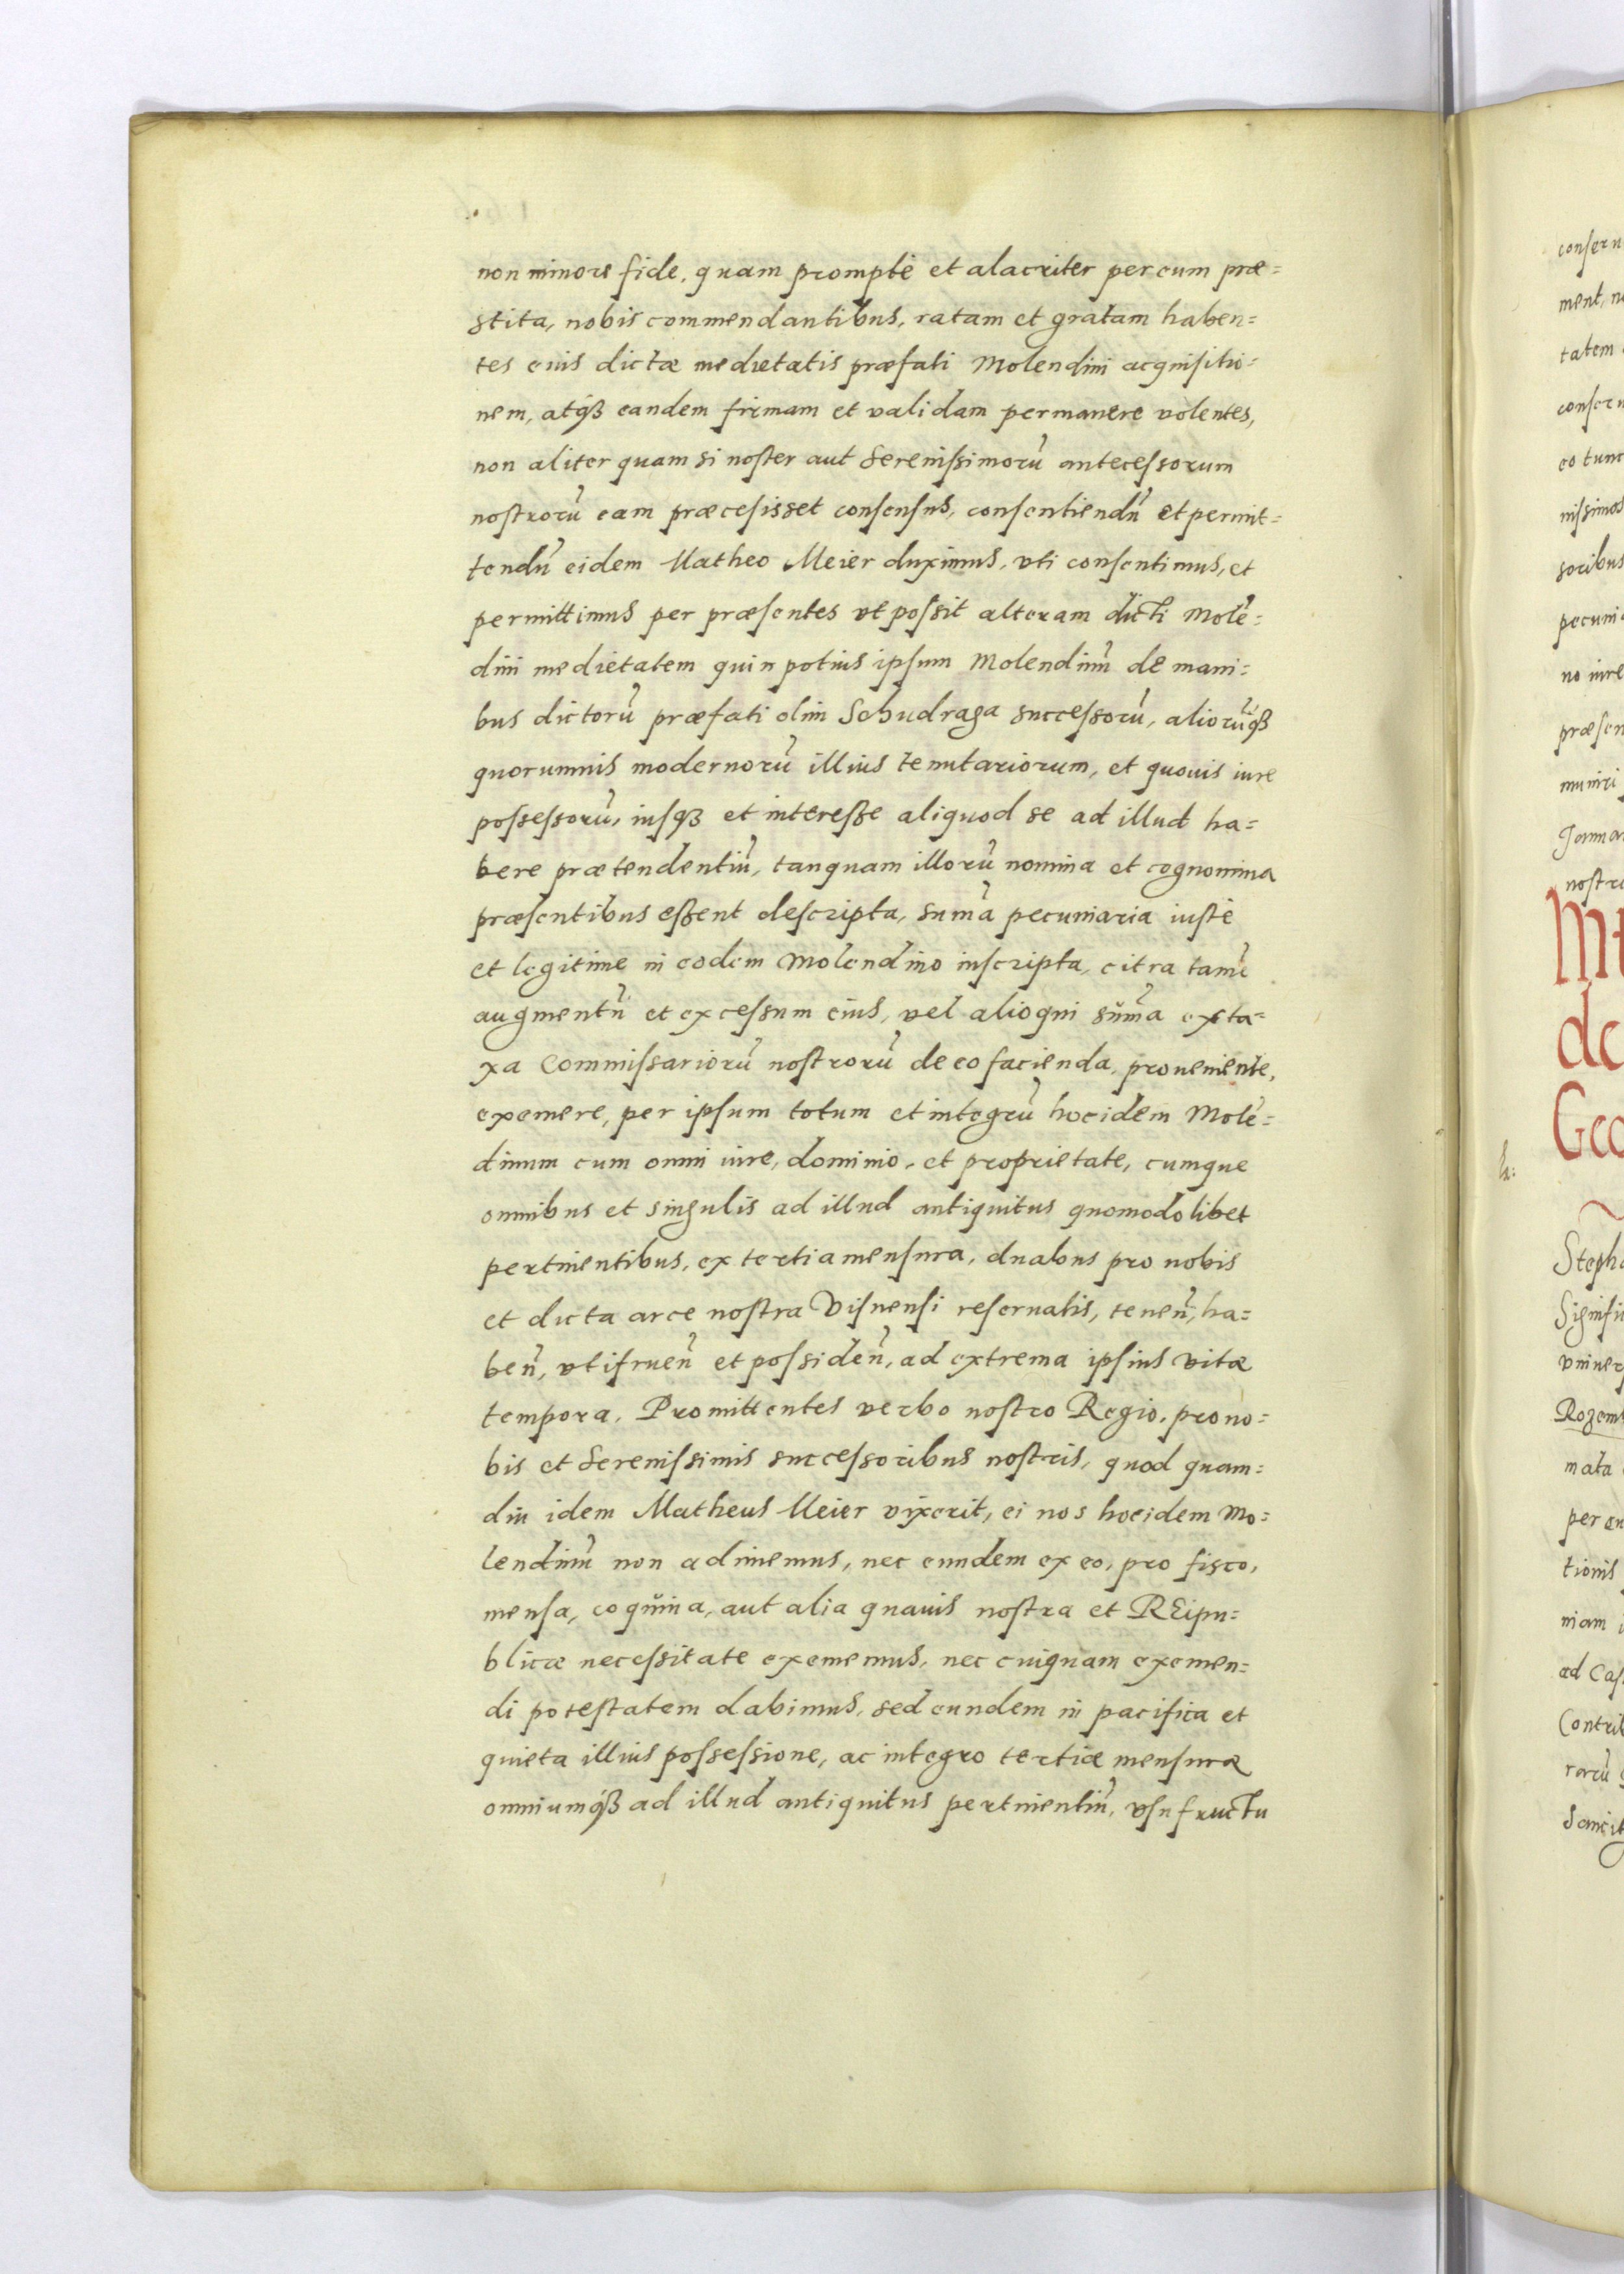 non minore fide, quam promptè et alacriter per eum præ=
stita, nobis commendantibus, ratam et gratam haben=
tes eius dictæ medietatis præfati Molendini acquisitio=
nem, atq́ꝫ eandem firmam et validam permanere volentes,
non aliter quam si noster aut Serenissimorũ antecessorum
nostrorũ eam præcesisset consensus, consentiendũ et permit=
tendũ eidem Matheo Meier duximus, vti consentimus, et
permittimus per præsentes vt possit alteram dicti Molẽ=
dini medietatem quin potius ipsum Molendinũ de mani=
bus dictorũ præfati olim Schudraga successorũ, aliorũq́ꝫ
quorumuis modernorũ illius tenutariorum, et quouis iure
possessorũ, iusqꝫ et interesse aliquod se ad illud ha=
bere prætendentiũ, tanquam illorũ nomina et cognomina
præsentibus essent descripta, sum̃a pecuniaria iustè
et legitimè in eodem Molendino inscripta, citra tamẽ
augmentũ et excessum eius, vel alioqui sum̃a ex ta=
xa Commissariorũ nostrorũ de eo facienda, proueniente,
exemere, per ipsum totum et integrũ hocidem Molẽ=
dinum cum omni iure, dominio, et proprietate, cumque
omnibus et singulis ad illud antiquitus quomodolibet
pertinentibus, ex tertia mensura, duabus pro nobis
et dicta arce nostra Visnensi reseruatis, teneñ, ha=
beñ, vtifrueñ et possideñ, ad extrema ipsius vitæ
tempora. Promittentes verbo nostro Regio, pro no=
bis et Serenissimis successoribus nostris, quod quam=
diu idem Matheus Meier vixerit, ei nos hocidem Mo=
lendinũ non adimemus, nec eundem ex eo, pro fisco,
mensa, coquina, aut alia quauis nostra et REipu=
blicæ necessitate exememus, nec cuiquam exemen=
di potestatem dabimus, sed eundem in pacifica et
quieta illius possessione, ac integro tertiæ mensuræ
omniumq́ꝫ ad illud antiquitus pertinentiũ, vsufructu